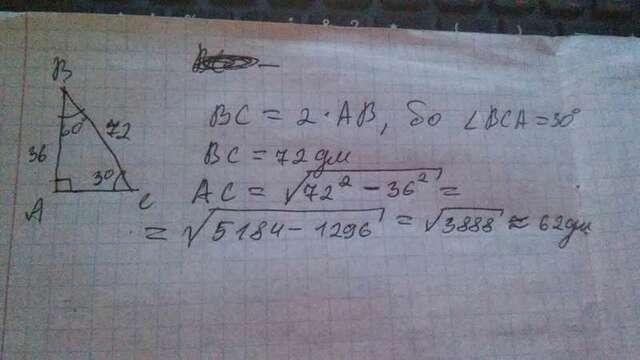 B
60° 72
36
30°
A C
BC = 2·AB, бо ∠BCA = 30°
BC = 72 дм
AC = √(72² − 36²) =
= √(5184 − 1296) = √3888 ≈ 62 дм